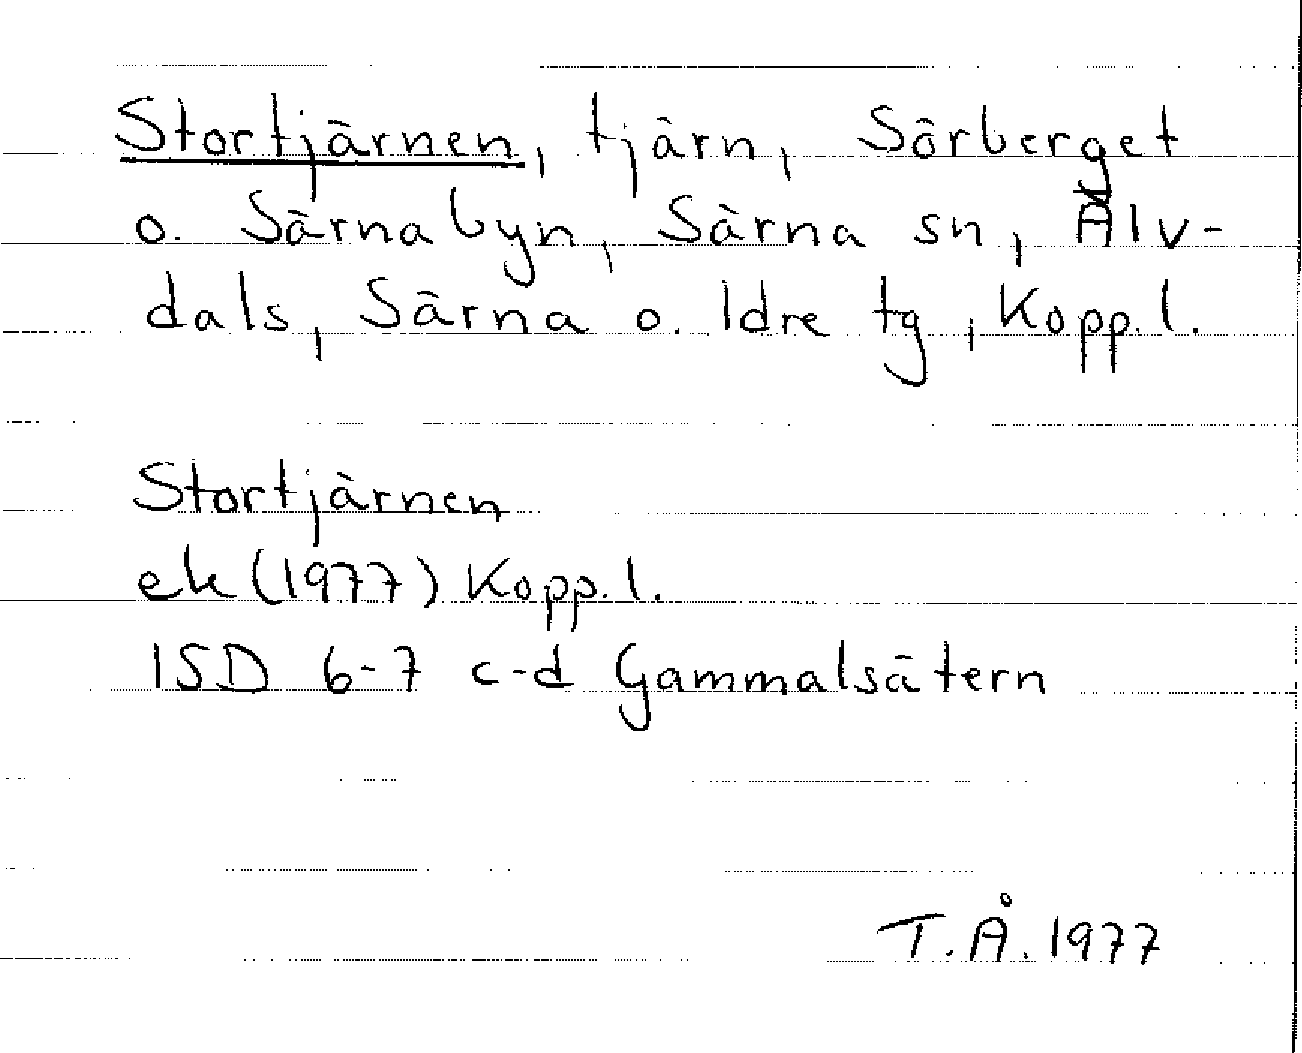 Stortjärnen, tjärn, Sörberget
o. Särnabyn, Särna sn, Älv-
dals, Särna o. Idre tg, Kopp. l.
Stortjärnen
ek (1977) Kopp. l.
15D 6-7 c-d Gammalsätern
T.Å. 1977